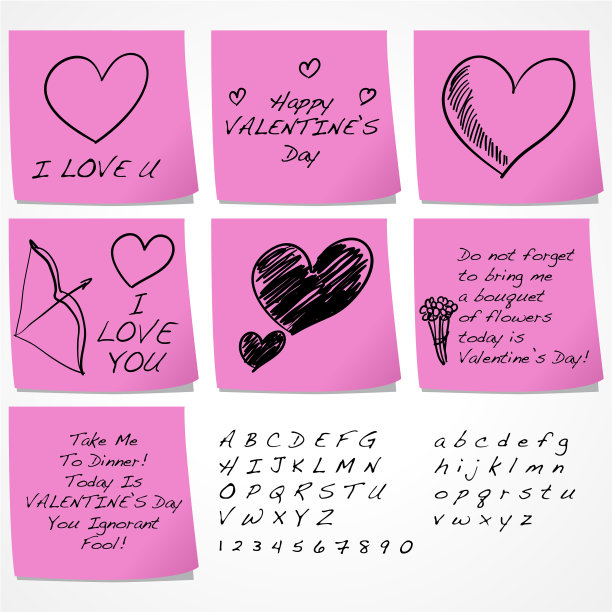 I LOVE U
Happy
VALENTINE'S
Day
I
LOVE
YOU
Do not forget
to bring me
a bouquet
of flowers
today is
Valentine's Day!
Take Me
To Dinner!
Today Is
VALENTINE'S Day
You Ignorant
Fool!
A B C D E F G
H I J K L M N
O P Q R S T U
V W X Y Z
1 2 3 4 5 6 7 8 9 0
a b c d e f g
h i j k l m n
o p q r s t u
v w x y z